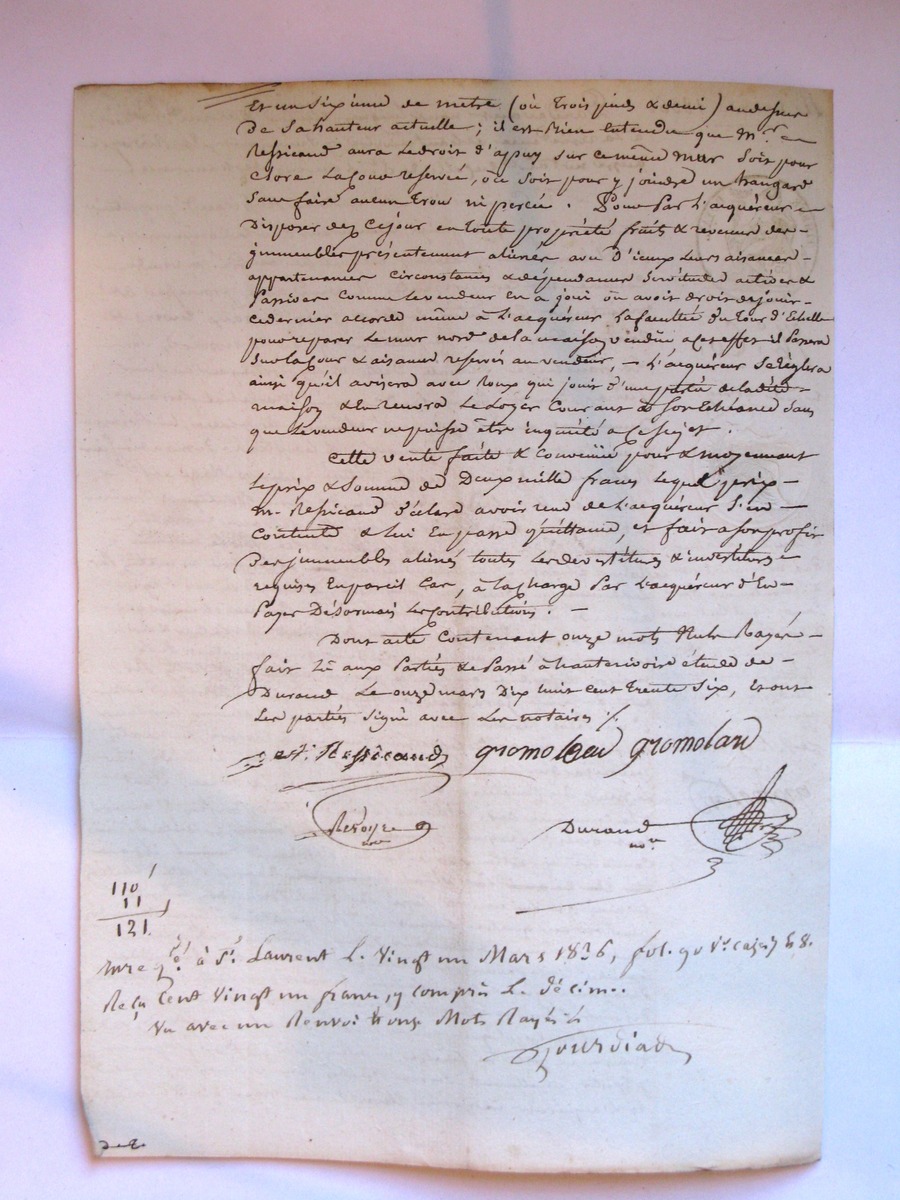 Et un sixieme de metre (ou trois pieds & demi) audessus
de sa hauteur actuelle; il est bien entendu que M.r
Ressicaud aura le droit d'appuy sur ce même mur soit pour
clore la cour reservée, ou soit pour y joindre un hangard
sans faire aucun trou ni percée. Pour par l'acquéreur
disposer dez ce jour en toute propriété fruits & revenus des
immeubles présentement aliénés avec d'iceux leurs aisances
appartenances circonstances & dépendances servitudes actives &
passives comme le vendeur en a joui ou avoit droit de jouir
ce dernier accorde même à l'acquéreur la faculté du tour d'Echelle
pour reparer le mur nord de la maison vendue a cet effet il passera
sur la cour & aisance reservés au vendeur, - L'acquéreur se règlera
ainsi qu'il avisera avec Roux qui jouit d'une partie de la dite
maison & en recevra le loyer courant à son Echéance sans
que le vendeur ne puisse être inquiété a ce sujet.
Cette vente faite & convenue pour & moyennant
le prix & somme de Deux mille francs lequel prix
m. Ressicaud déclare avoir recu de l'acquéreur s'en
contente & lui en passe quittance, et fait a son profit
des immeubles aliénés toutes les devestitures & investitures
requises en pareil cas, à la charge par l'acquéreur d'en
payer désormais les contributions. -
Dont acte contenant onze mots nuls rayés
fait lû aux parties & passé à hauterivoire étude de
Durand le onze mars dix huit cent trente six, et ont
les parties signé avec les notaires ./.
Ressicaud gromolard gromolard
Durand
no.re
110
11
121.
Enreg.é à S.t Laurent le vingt un Mars 1836, fol. 90 v.o
Reçu cent vingt un francs, y compris le décime.
Vu avec un Renvoi & onze Mots Rayés
Jourdiad